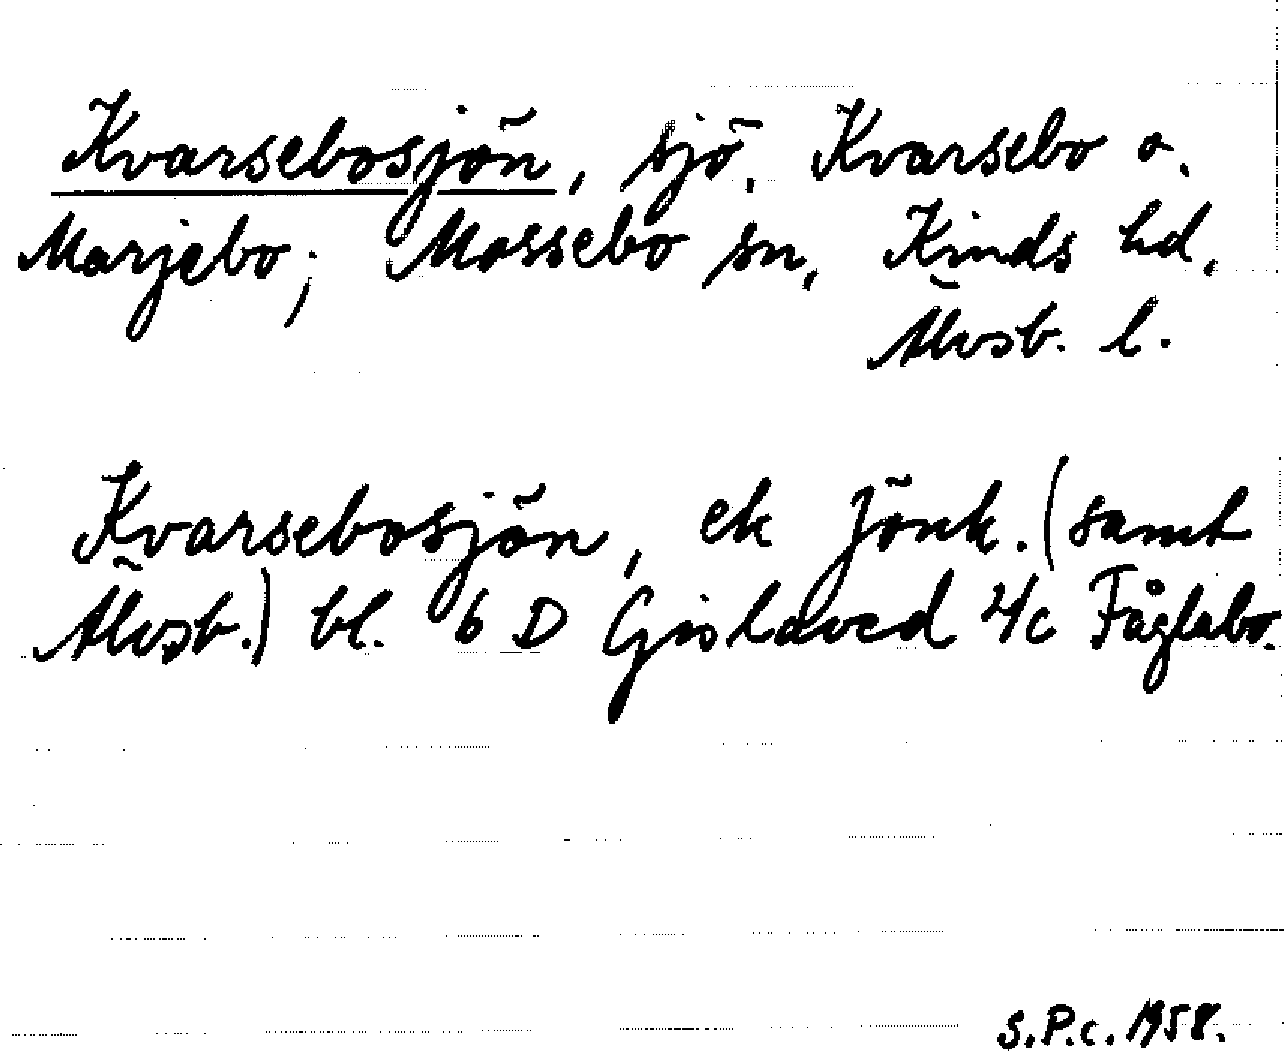 Kvarsebosjön, sjö, Kvarsebo o.
Marjebo; Mossebo sn, Kinds hd,
Älvsb. l.
Kvarsebosjön, ek Jönk. (samt
Älvsb.) bl. 6 D Gislaved 4c Fåglabo.
S.P.C. 1958.